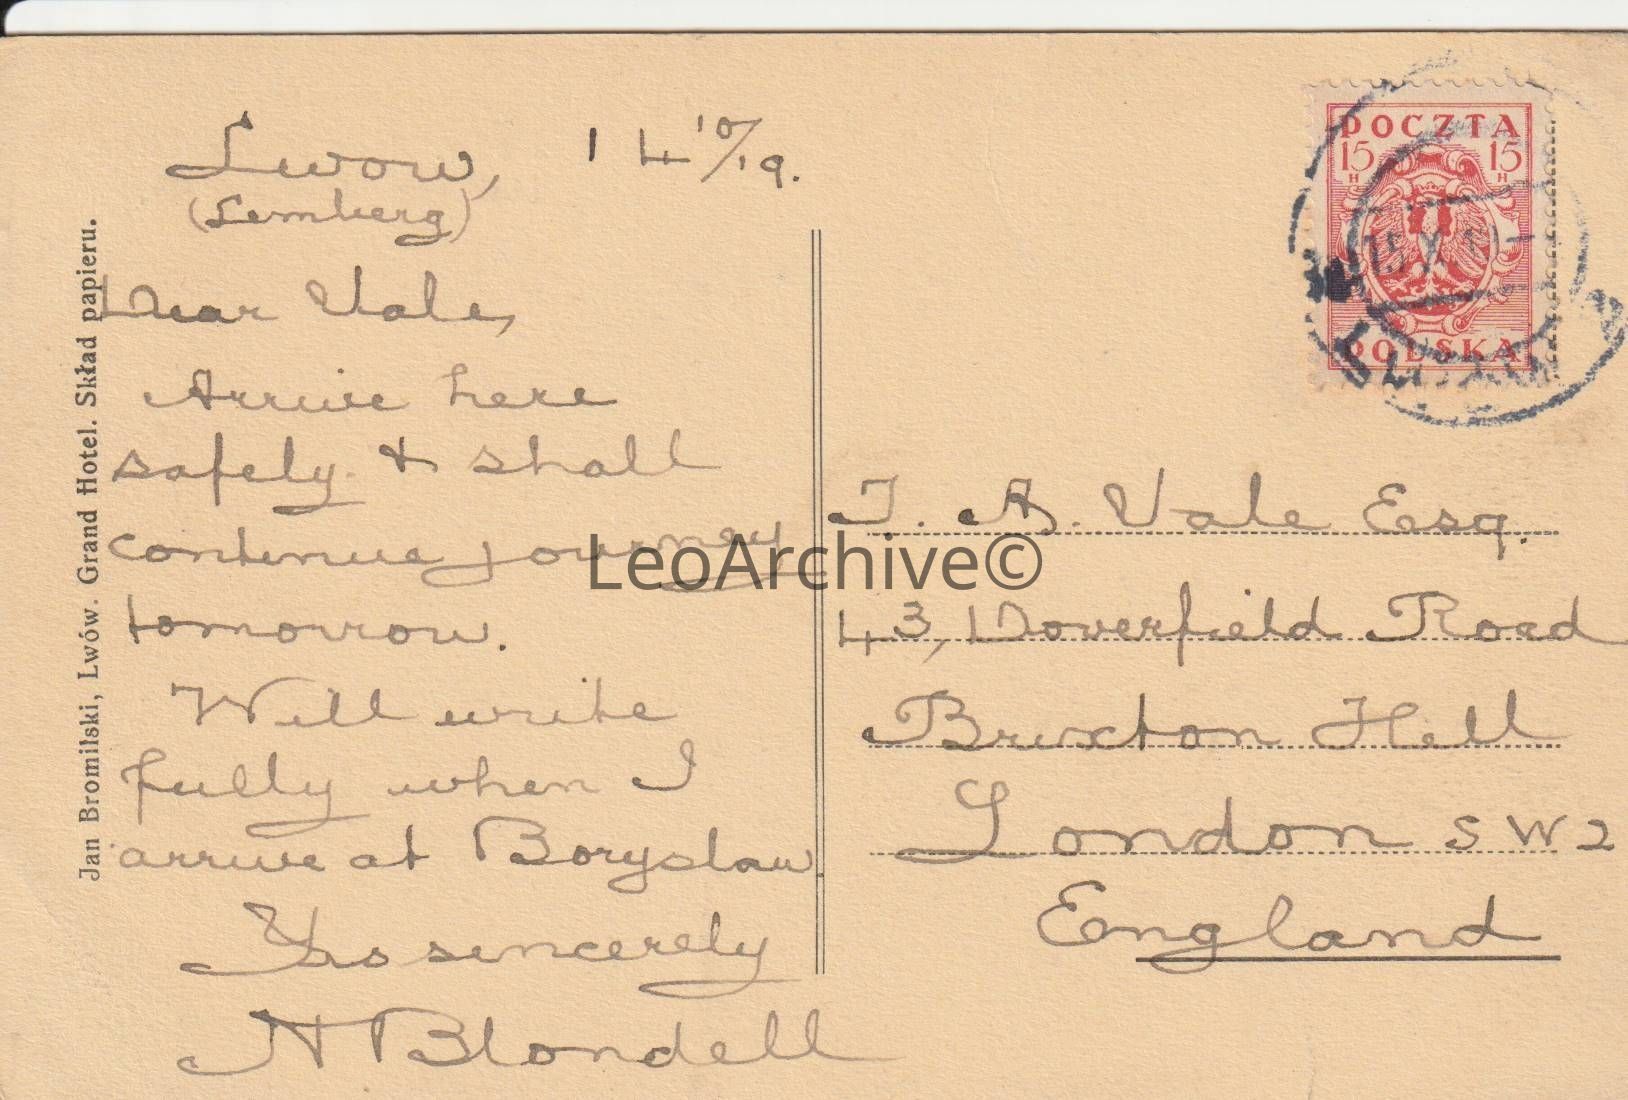 Lwow, 14 10/19.
(Lemberg)
Dear Vale,
Arrive here
safely & shall
continue journey
tomorrow.
Will write
fully when I
arrive at Boryslaw
Yrs sincerely
A Blondell
Jan Bromilski, Lwów. Grand Hotel. Skład papieru.
POCZTA
15 15
H H
POLSKA
15 X 19
T. A. Vale Esq.
43, Doverfield Road
Brixton Hill
London SW2
England
LeoArchive©